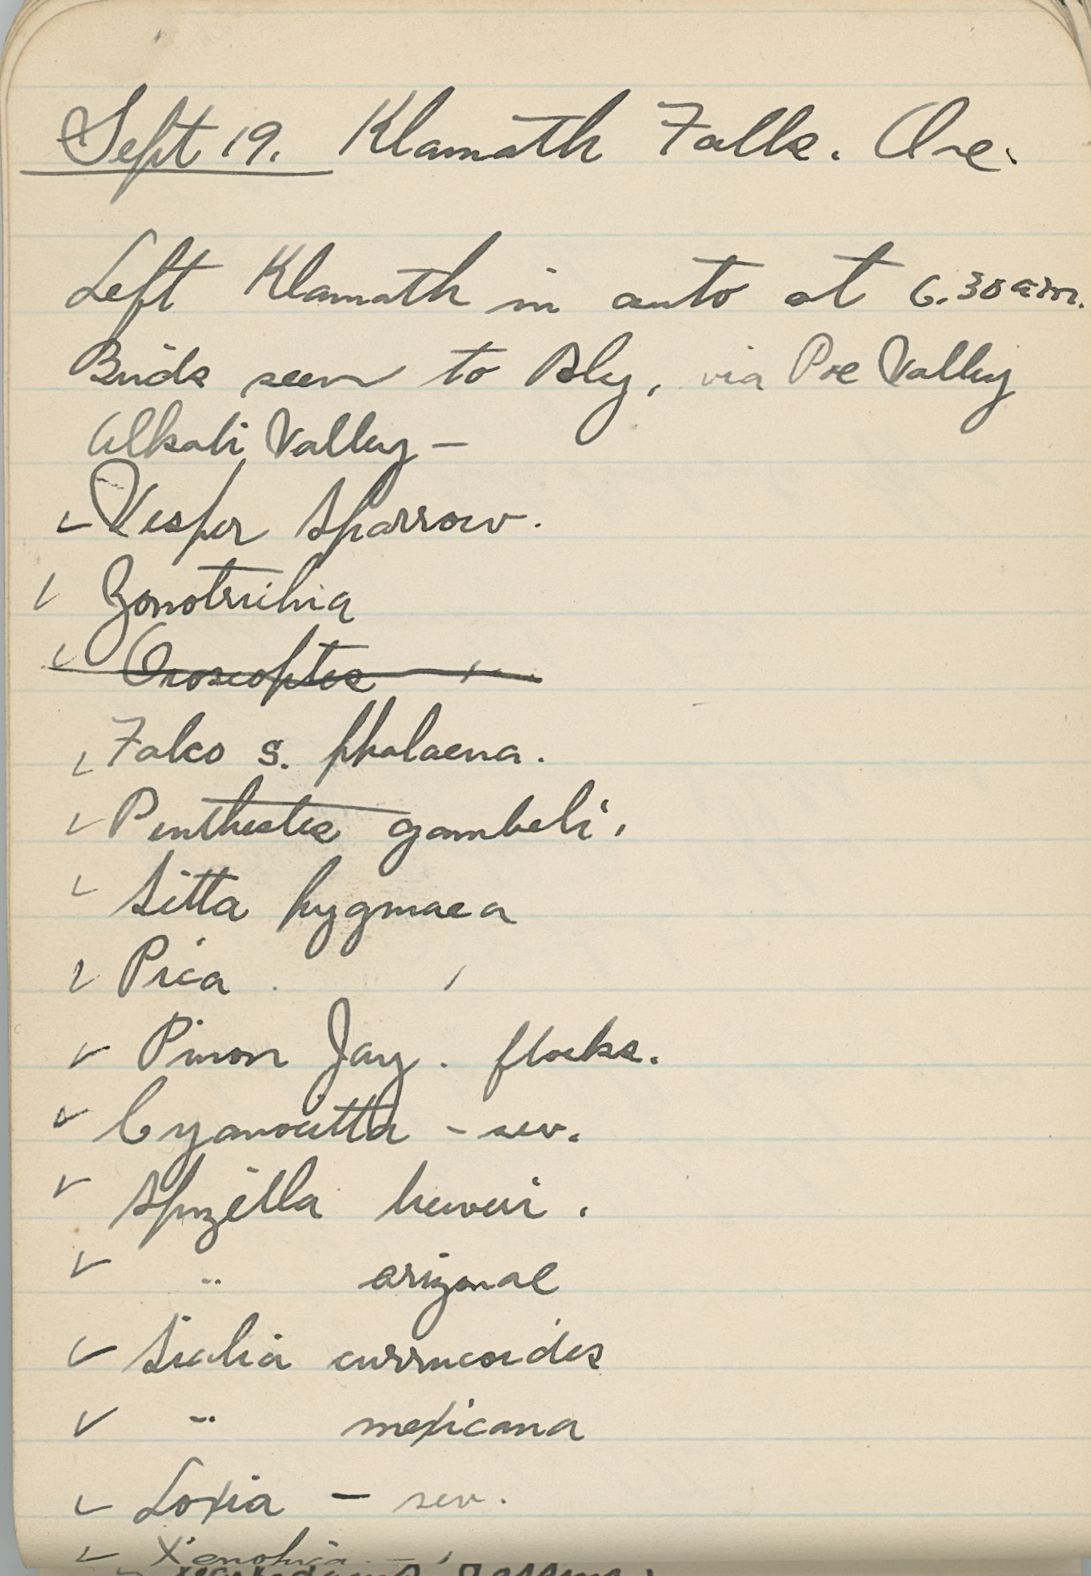 Sept 19. Klamath Falls. Ore.
Left Klamath in auto at 6.30 am.
Birds seen to Bly, via Poe Valley
Alkali Valley —
✓ Vesper Sparrow.
✓ Zonotrichia
✓ Oroscoptes
✓ Falco s. phalaena.
✓ Penthestes gambeli.
✓ Sitta pygmaea
✓ Pica
✓ Pinon Jay. flocks.
✓ Cyanocitta - sev.
✓ Spizella breweri.
✓ " arizonae
✓ Sialia currucoides
✓ " mexicana
✓ Loxia — sev.
✓ Xenopicus -